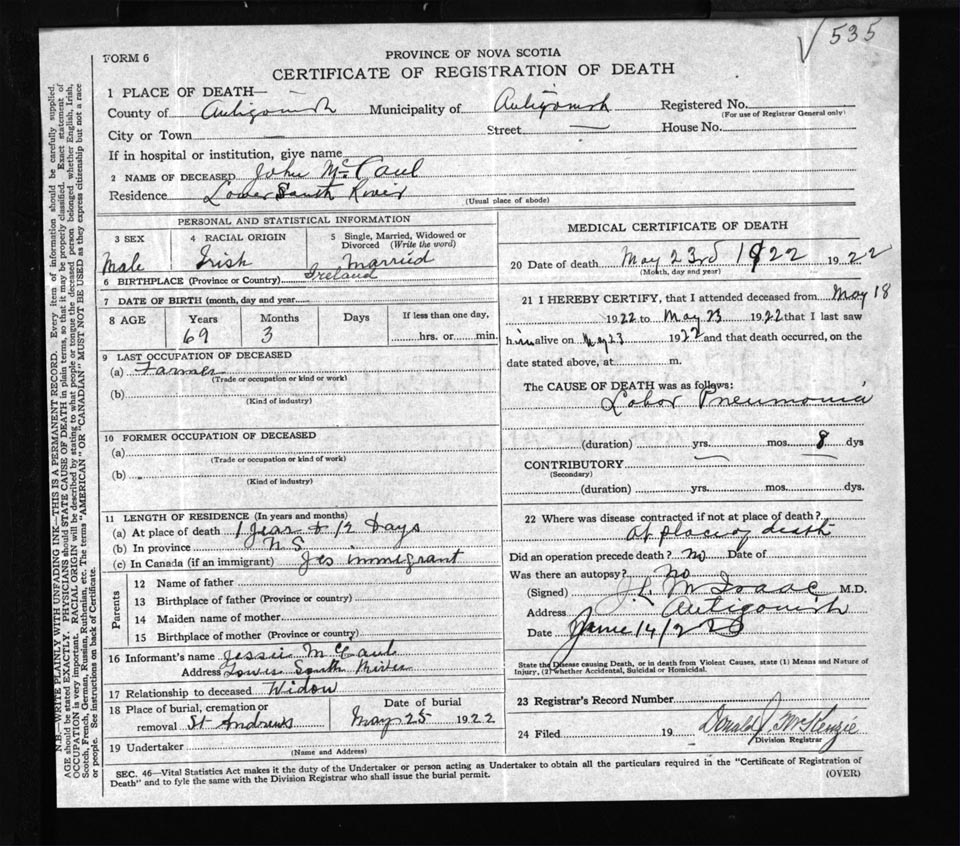 √ 535
FORM 6
PROVINCE OF NOVA SCOTIA
CERTIFICATE OF REGISTRATION OF DEATH
1 PLACE OF DEATH—
County of Antigonish Municipality of Antigonish Registered No.
(For use of Registrar General only)
City or Town — Street — House No.
If in hospital or institution, give name
2 NAME OF DECEASED John McCaul
Residence Lower South River
(Usual place of abode)
PERSONAL AND STATISTICAL INFORMATION
3 SEX 4 RACIAL ORIGIN 5 Single, Married, Widowed or Divorced (Write the word)
Male Irish Married
6 BIRTHPLACE (Province or Country) Ireland
7 DATE OF BIRTH (month, day and year)
8 AGE Years Months Days If less than one day,
69 3 hrs. or min.
9 LAST OCCUPATION OF DECEASED
(a) Farmer
(Trade or occupation or kind or work)
(b)
(Kind of industry)
10 FORMER OCCUPATION OF DECEASED
(a)
(Trade or occupation or kind or work)
(b)
(Kind of industry)
11 LENGTH OF RESIDENCE (In years and months)
(a) At place of death 1 year & 12 Days
(b) In province N S
(c) In Canada (if an immigrant) Yes immigrant
Parents
12 Name of father
13 Birthplace of father (Province or country)
14 Maiden name of mother
15 Birthplace of mother (Province or country)
16 Informant's name Jessie McCaul
Address Lower South River
17 Relationship to deceased Widow
18 Place of burial, cremation or removal St Andrews
Date of burial
May 25 1922
19 Undertaker
(Name and Address)
MEDICAL CERTIFICATE OF DEATH
20 Date of death May 23rd 1922 1922
(Month, day and year)
21 I HEREBY CERTIFY, that I attended deceased from May 18
1922 to May 23 1922 that I last saw
him alive on May 23 1922 and that death occurred, on the
date stated above, at m.
The CAUSE OF DEATH was as follows:
Lobar Pneumonia
(duration) yrs. mos. 8 dys
CONTRIBUTORY
(Secondary)
(duration) yrs. mos. dys.
22 Where was disease contracted if not at place of death?
at place of death
Did an operation precede death? no Date of
Was there an autopsy? no
(Signed) M.D.
Address Antigonish
Date June 14/22
State the Disease causing Death, or in death from Violent Causes, state (1) Means and Nature of
Injury, (2) whether Accidental, Suicidal or Homicidal.
23 Registrar's Record Number
24 Filed 19 Donald J McKenzie
Division Registrar
SEC. 46—Vital Statistics Act makes it the duty of the Undertaker or person acting as Undertaker to obtain all the particulars required in the "Certificate of Registration of
Death" and to fyle the same with the Division Registrar who shall issue the burial permit.
(OVER)
N.B.—WRITE PLAINLY WITH UNFADING INK—THIS IS A PERMANENT RECORD. Every item of information should be carefully supplied.
AGE should be stated EXACTLY. PHYSICIANS should STATE CAUSE OF DEATH in plain terms, so that it may be properly classified. Exact statement of
OCCUPATION is very important. RACIAL ORIGIN will be described by stating to what people or tongue the deceased person belonged whether English, Irish,
Scotch, French, German, Russian, Ruthenian, etc. The terms "AMERICAN" OR "CANADIAN" MUST NOT BE USED as they express citizenship but not a race
or people. See instructions on back of Certificate.